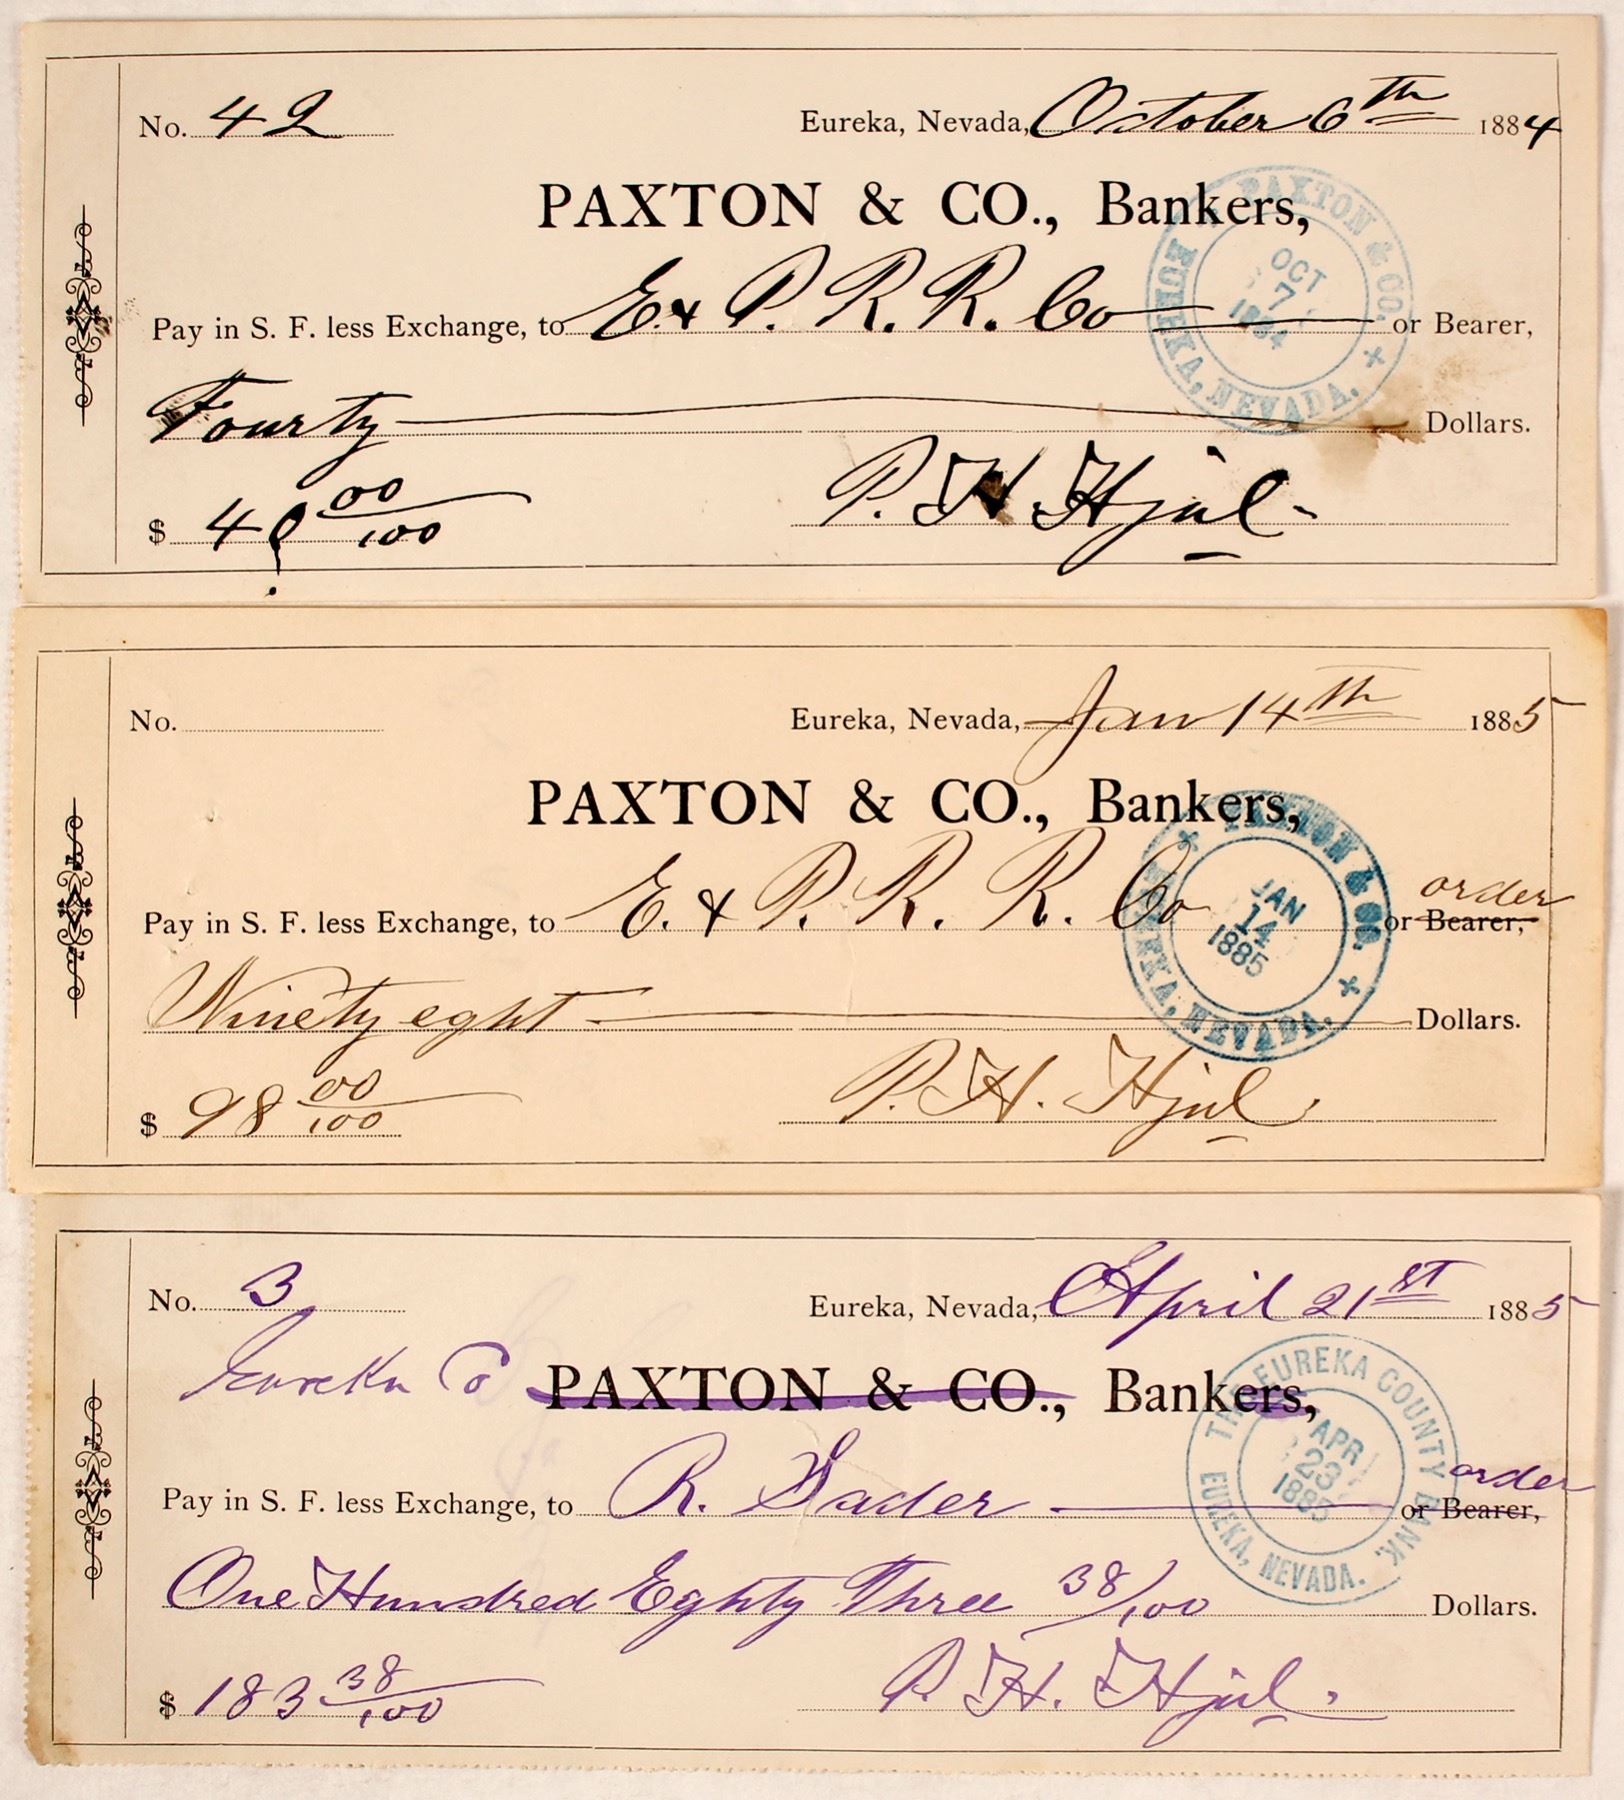 No. 42 Eureka, Nevada, October 6th 1884
PAXTON & CO., Bankers,
Pay in S. F. less Exchange, to E. & P. R. R. Co or Bearer,
Fourty Dollars.
$ 40 00/100 P. H. Hjul.
PAXTON & CO. EUREKA, NEVADA.
OCT
7
1884
No. Eureka, Nevada, Jan 14th 1885
PAXTON & CO., Bankers,
order
Pay in S. F. less Exchange, to E. & P. R. R. Co or Bearer,
Ninety eght Dollars.
$ 98 00/100 P. H. Hjul.
PAXTON & CO. EUREKA, NEVADA.
JAN
14
1885
No. 3 Eureka, Nevada, April 21st 1885
Eureka Co PAXTON & CO., Bankers,
order
Pay in S. F. less Exchange, to R. Sader or Bearer,
One Hundred Eghty Three 38/100 Dollars.
$ 183 38/100 P. H. Hjul.
THE EUREKA COUNTY BANK. EUREKA, NEVADA.
APR
23
1885